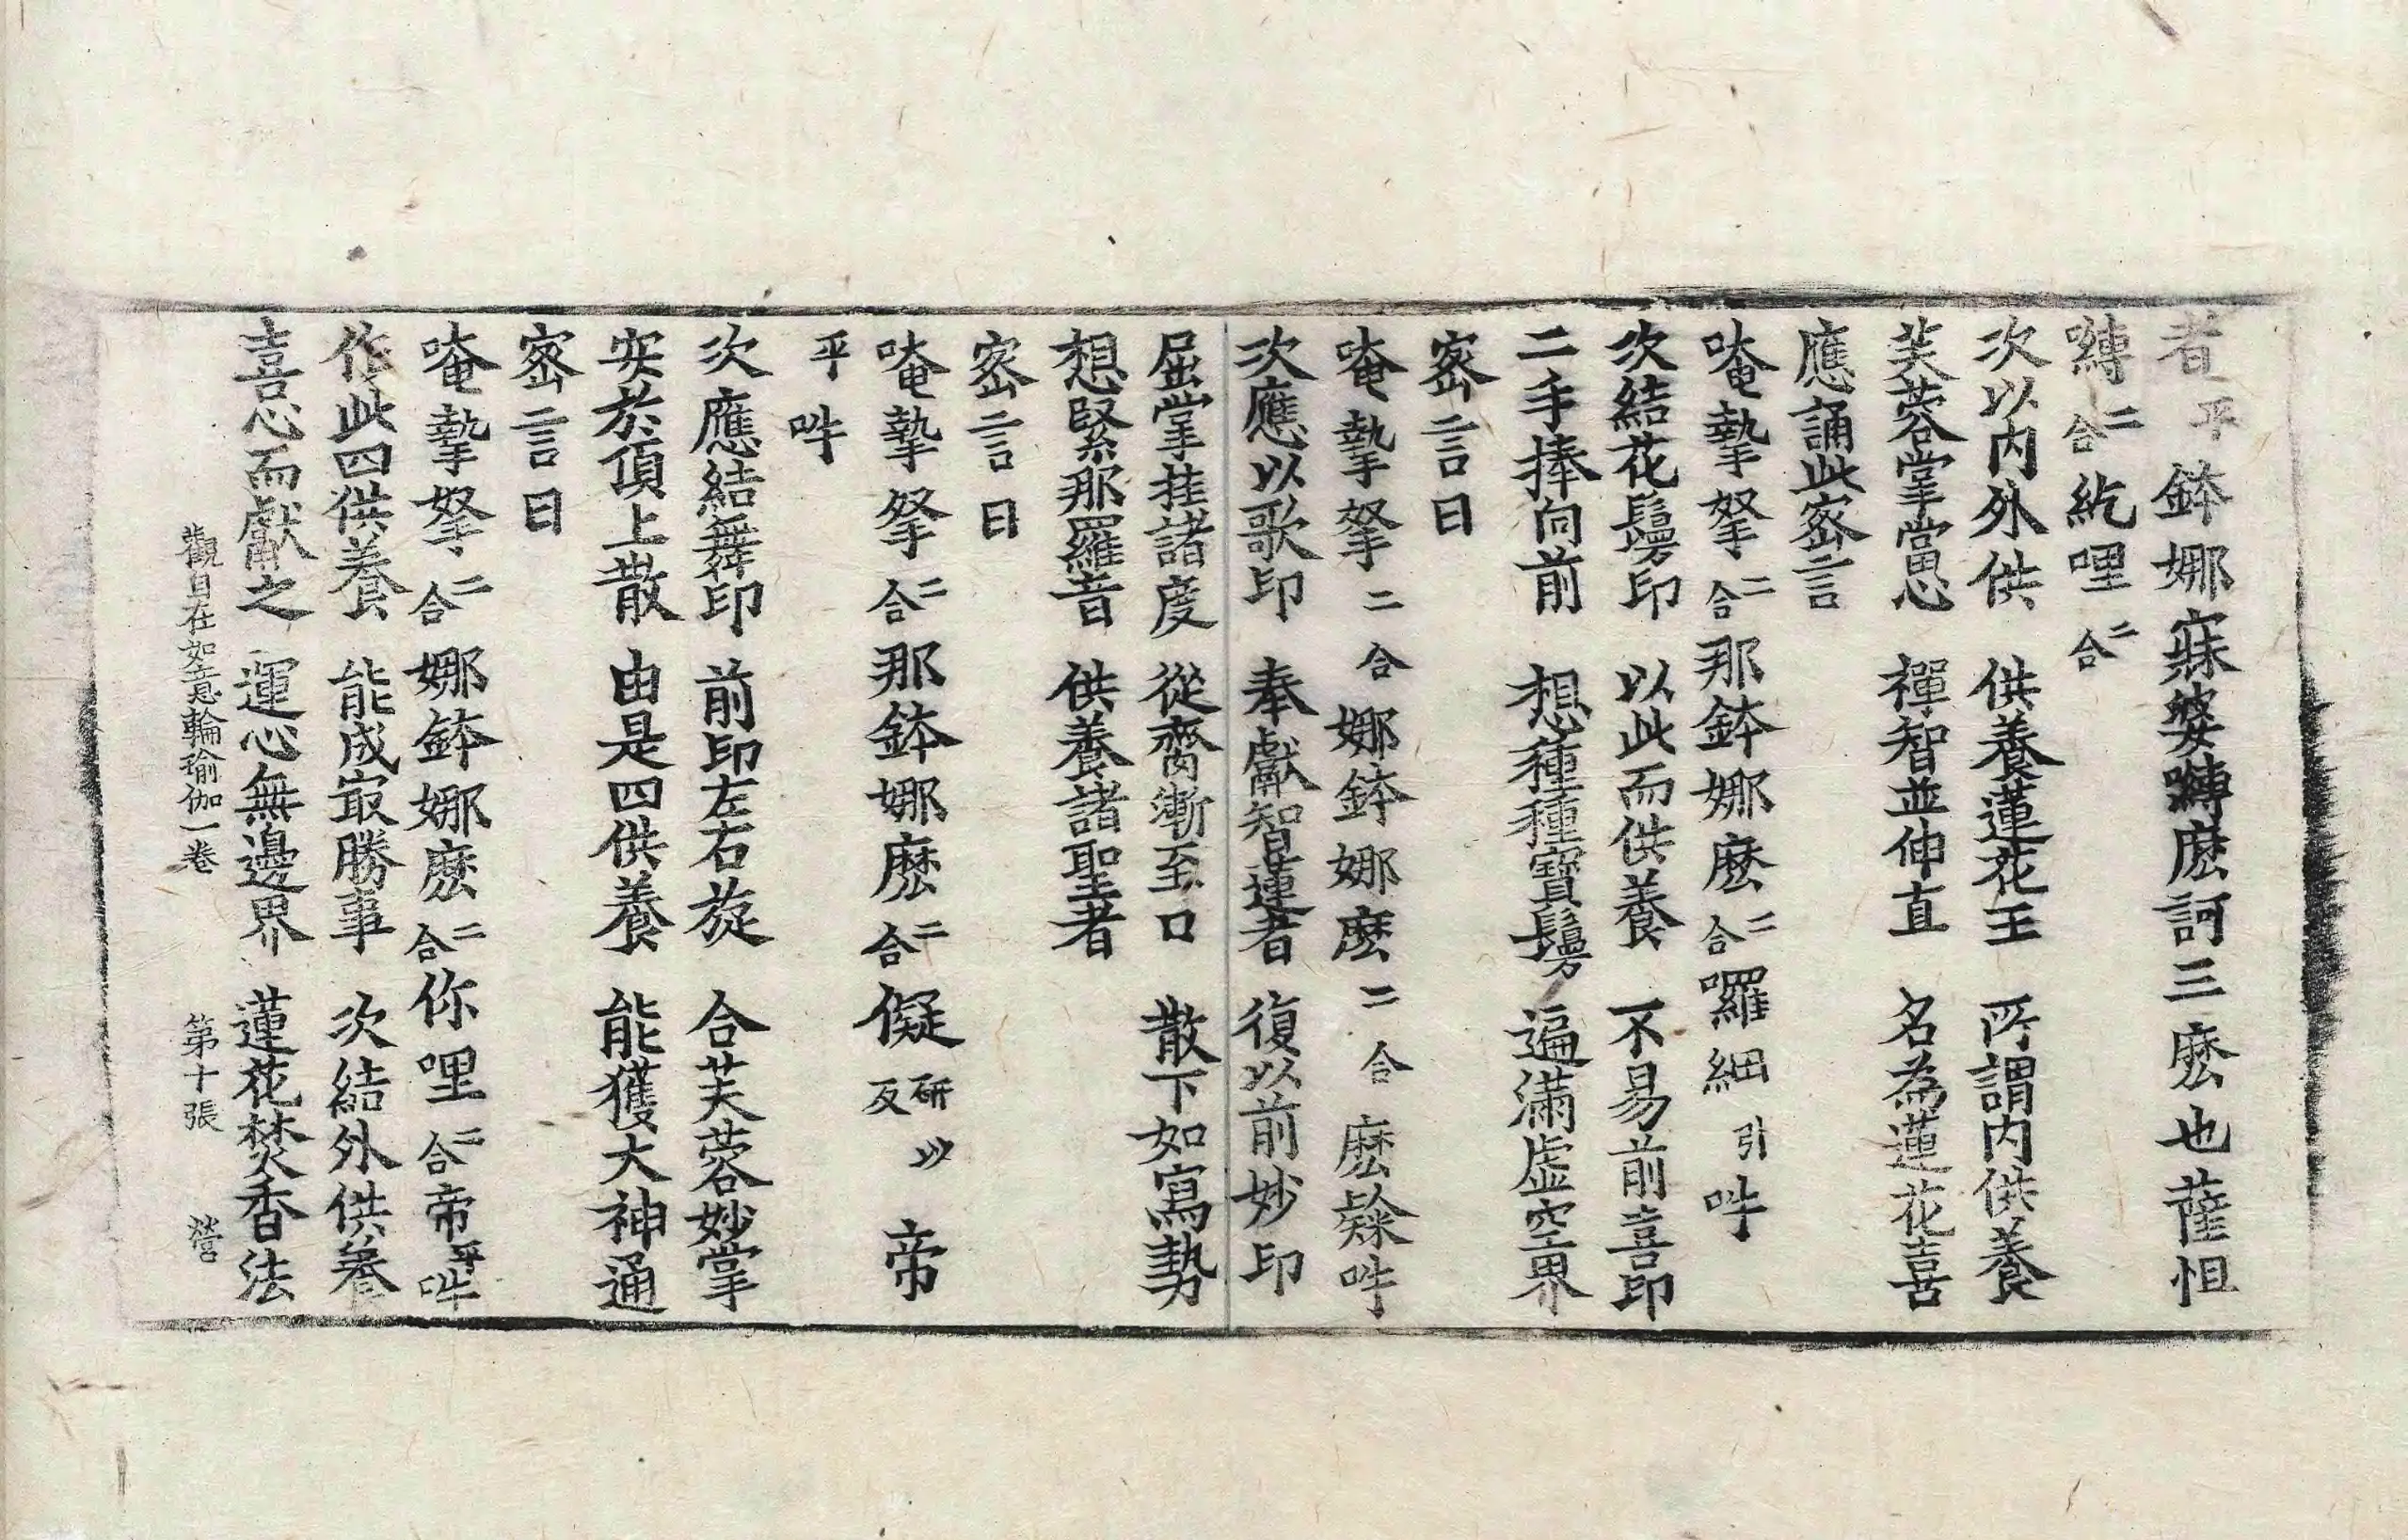 者平鉢娜寐婆嚩麽訶三麽也薩怛
嚩二合紇哩二合
次以内外供　供養蓮花王　所謂内供養
芙蓉掌當思　禪智並伸直　名為蓮花喜
應誦此密言
唵摯拏二合那鉢娜麽二合囉細引吽
次結花鬘印　以此而供養　不易前喜印
二手捧向前　想種種寶鬘　遍滿虛空界
密言曰
唵摯拏二合娜鉢娜麽二合麽䶎吽
次應以歌印　奉獻智蓮者　復以前妙印
屈掌挂諸度　從齎漸至口　散下如寫勢
想緊那羅音　供養諸聖者
密言曰
唵摯拏二合那鉢娜麽二合儗研以反帝
平吽
次應結舞印　前印左右旋　合芙蓉妙掌
安於頂上散　由是四供養　能獲大神通
密言曰
唵摯拏二合娜鉢娜麽二合你哩二合帝平吽
作此四供養　能成冣勝事　次結外供養
喜心而獻之　運心無邊界　蓮花焚香法
觀自在如意輪瑜伽一卷　第十張　營